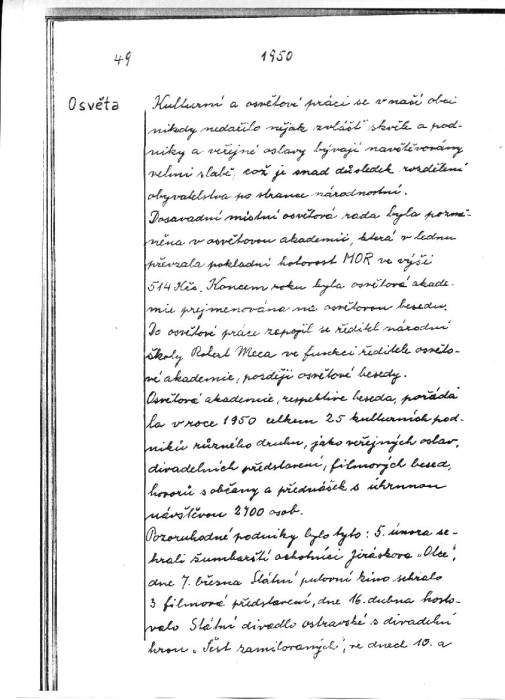 49
1950
Osvěta
Kulturní a osvětové práci se v naší obci
nikdy nedařilo nějak zvlášť skvěle a pod-
niky a veřejné oslavy bývají navštěvovány
velmi slabě, což je snad důsledek rozdělení
obyvatelstva po stránce národnostní.
Dosavadní místní osvětová rada byla pozmě-
něna v osvětovou akademii, která v lednu
převzala pokladní hotovost MOR ve výši
514 Kčs. Koncem roku byla osvětová akade-
mie přejmenována na osvětovou besedu.
Do osvětové práce zapojil se ředitel národní
školy Robert Meca ve funkci ředitele osvěto-
vé akademie, později osvětové besedy.
Osvětová akademie, respektive beseda, pořáda
la v roce 1950 celkem 25 kulturních pod-
niků různého druhu, jako veřejných oslav,
divadelních představení, filmových besed,
hovorů s občany a přednášek s úhrnnou
návštěvou 2400 osob.
Pozoruhodné podniky bylo tyto: 5. února se-
hráli šumbarští ochotníci Jiráskova „Otce",
dne 7. března Státní putovní kino sehrálo
3 filmová představení, dne 16. dubna hosto-
valo Státní divadlo ostravské s divadelní
hrou „Šest zamilovaných", ve dnech 10. a